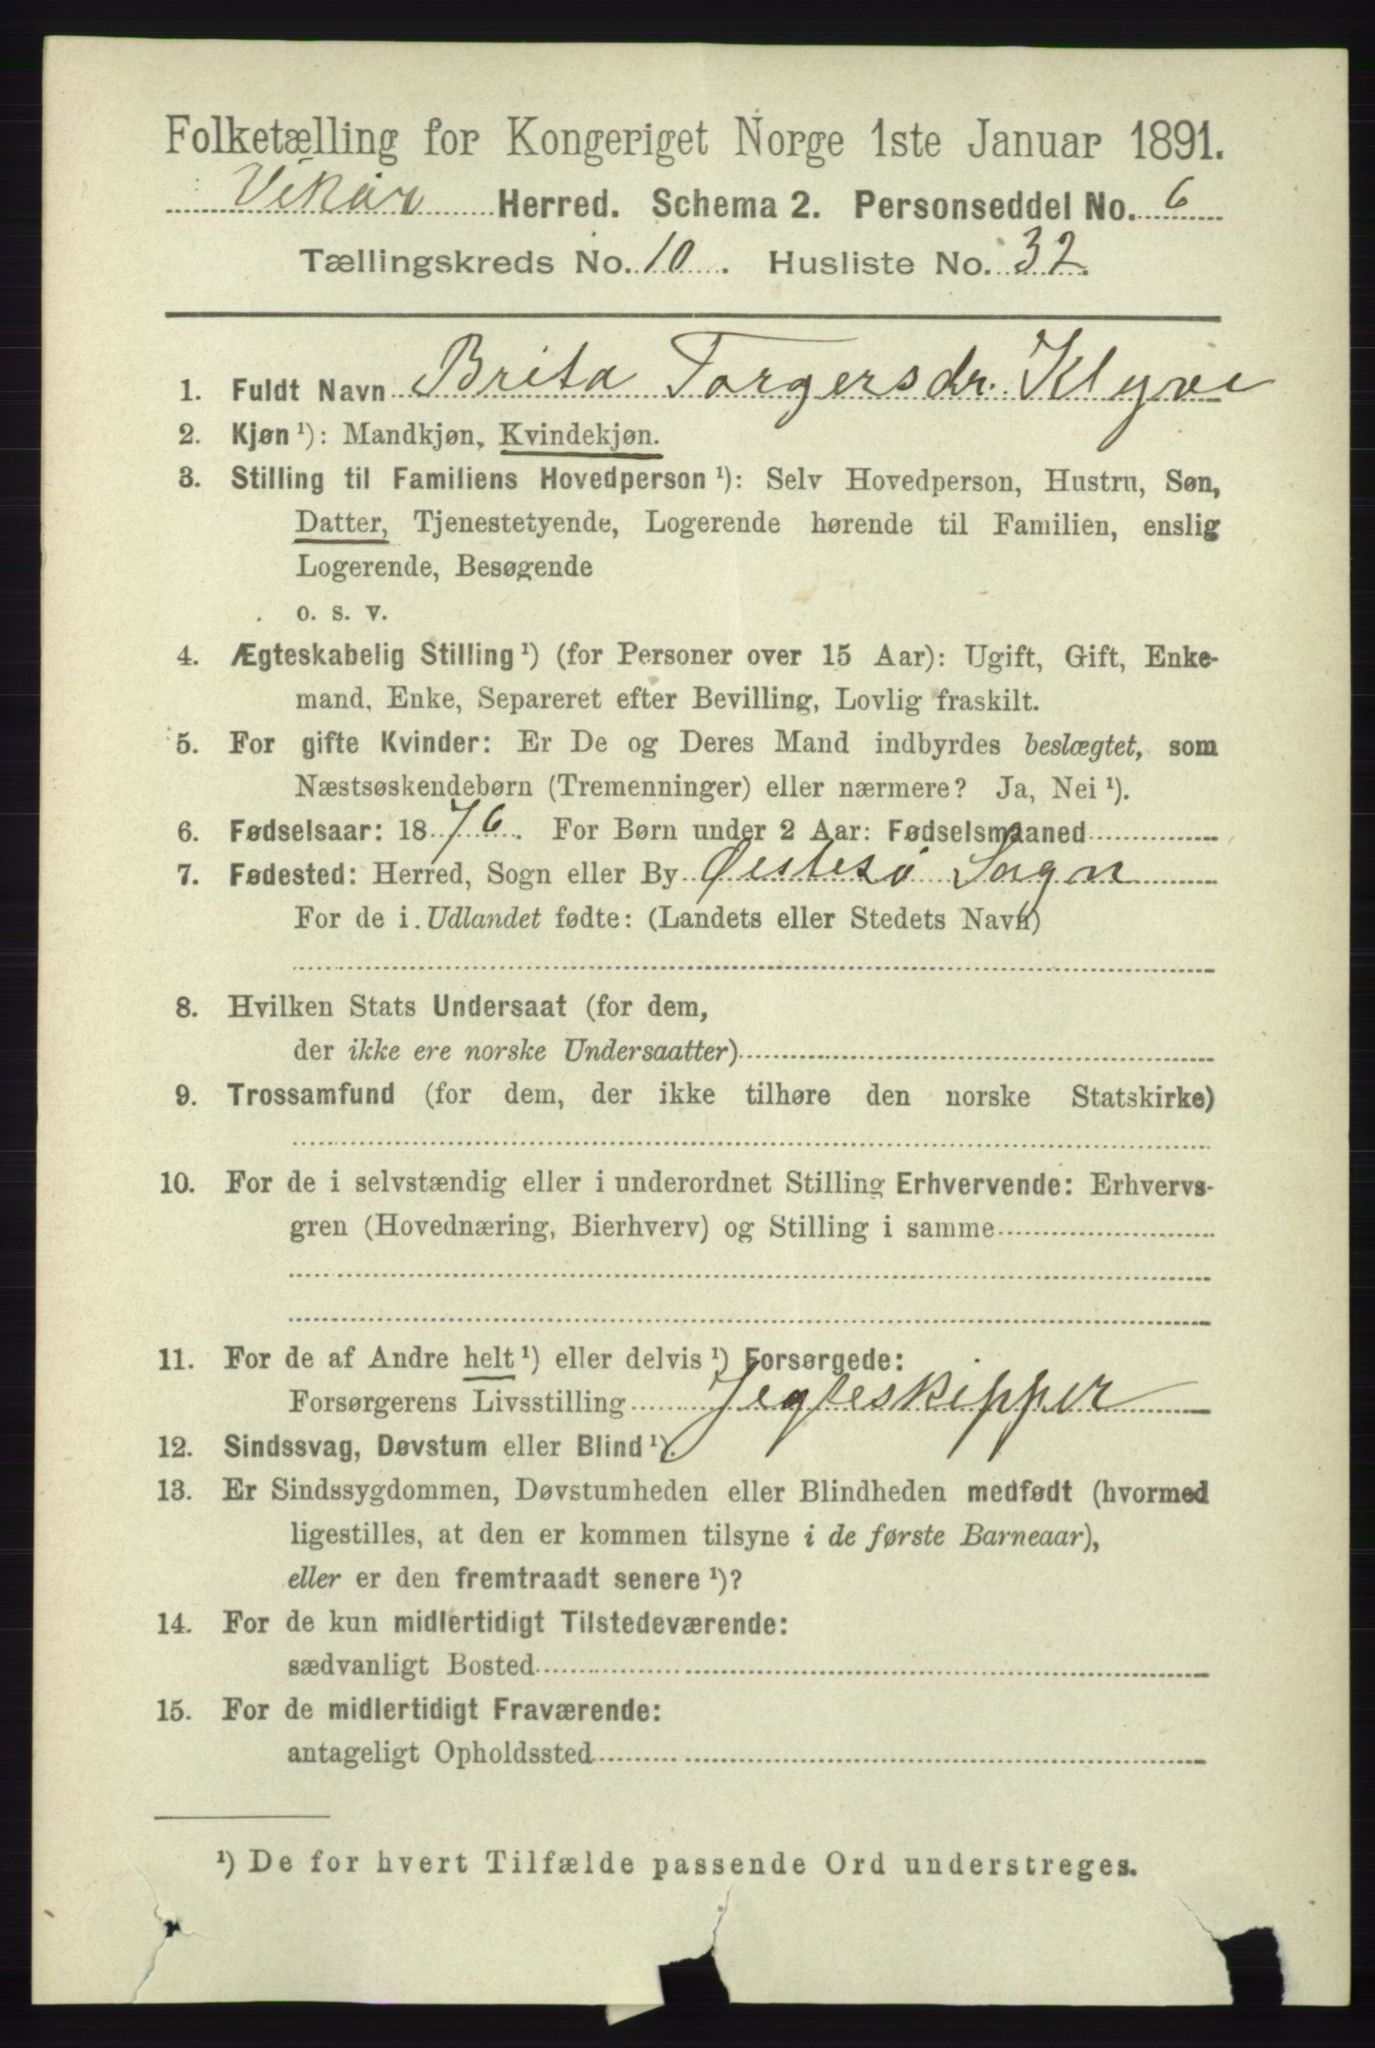 Folketælling for Kongeriget Norge 1ste Januar 1891.
Vikør Herred. Schema 2. Personseddel No. 6
Tællingskreds No. 10. Husliste No. 32.
1. Fuldt Navn Brita Torgersdr. Klyve
2. Kjøn ¹): Mandkjøn, Kvindekjøn.
3. Stilling til Familiens Hovedperson ¹): Selv Hovedperson, Hustru, Søn,
Datter, Tjenestetyende, Logerende hørende til Familien, enslig
Logerende, Besøgende
o. s. v.
4. Ægteskabelig Stilling ¹) (for Personer over 15 Aar): Ugift, Gift, Enke-
mand, Enke, Separeret efter Bevilling, Lovlig fraskilt.
5. For gifte Kvinder: Er De og Deres Mand indbyrdes beslægtet, som
Næstsøskendebørn (Tremenninger) eller nærmere? Ja, Nei ¹).
6. Fødselsaar: 1876. For Børn under 2 Aar: Fødselsmaaned
7. Fødested: Herred, Sogn eller By Østesø Sogn
For de i Udlandet fødte: (Landets eller Stedets Navn)
8. Hvilken Stats Undersaat (for dem,
der ikke ere norske Undersaatter)
9. Trossamfund (for dem, der ikke tilhøre den norske Statskirke)
10. For de i selvstændig eller i underordnet Stilling Erhvervende: Erhvervs-
gren (Hovednæring, Bierhverv) og Stilling i samme
11. For de af Andre helt ¹) eller delvis ¹) Forsørgede:
Forsørgerens Livsstilling Jegteskipper
12. Sindssvag, Døvstum eller Blind ¹).
13. Er Sindssygdommen, Døvstumheden eller Blindheden medfødt (hvormed
ligestilles, at den er kommen tilsyne i de første Barneaar),
eller er den fremtraadt senere ¹)?
14. For de kun midlertidigt Tilstedeværende:
sædvanligt Bosted
15. For de midlertidigt Fraværende:
antageligt Opholdssted
¹) De for hvert Tilfælde passende Ord understreges.